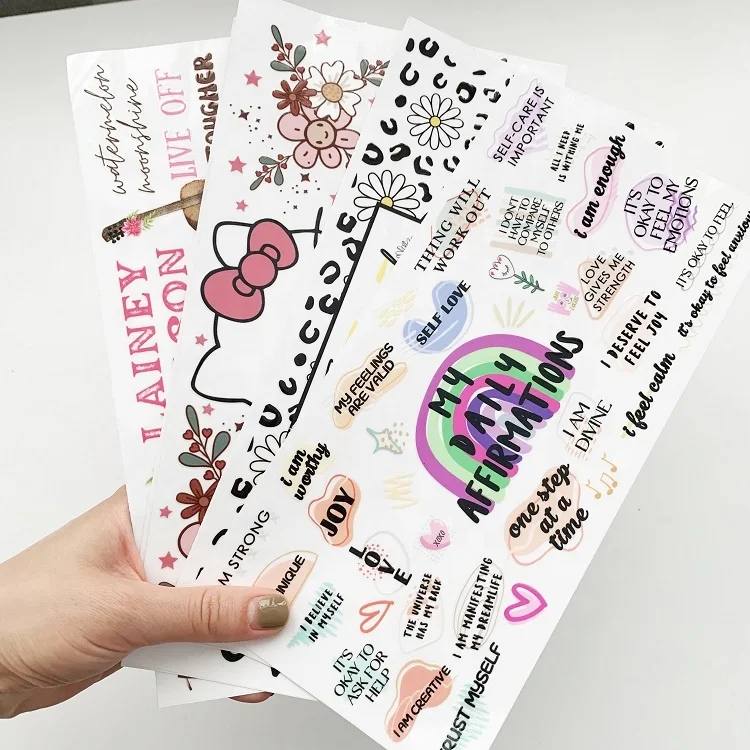 watermelon
moonshine
LIVE OFF
TOUGHER
LAINEY
SON
SELF-CARE IS
IMPORTANT
ALL I NEED
IS WITHING ME
i am enough
IT'S
OKAY TO
FEEL MY
EMOTIONS
IT'S OKAY TO FEEL
it's okay to feel anxio
THING WILL
WORK OUT
I DON'T
HAVE TO
COMPARE
MYSELF
TO OTHERS
LOVE
GIVES ME
STRENGTH
I DESERVE TO
FEEL JOY
SELF LOVE
MY
DAILY
AFFIRMATIONS
MY FEELINGS
ARE VALID
I AM
DIVINE
i feel calm
i am
worthy
JOY
one step
at a
time
M STRONG
LOVE
XOXO
NIQUE
I BELIEVE
IN MYSELF
THE UNIVERSE
HAS MY BACK
I AM MANIFESTING
MY DREAMLIFE
IT'S
OKAY TO
ASK FOR
HELP
I AM CREATIVE
TRUST MYSELF